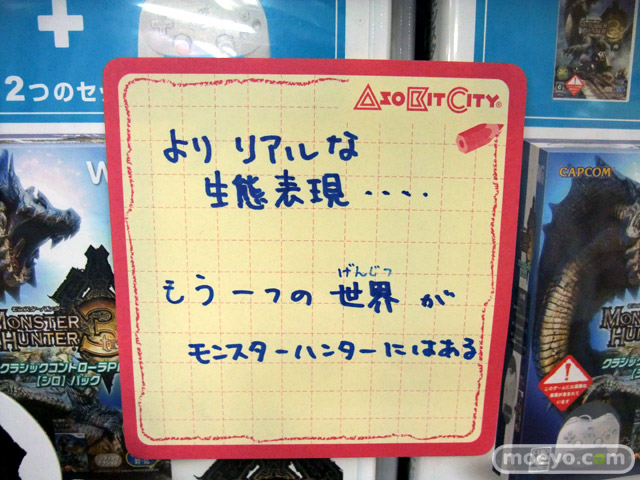 2つのセッ
AsoBitCity®
より リアルな
生態表現‥‥
げんじつ
もう一つの 世界 が
モンスターハンターにはある
W
MONSTER
HUNTER 3
クラシックコントローラP
[シロ] パック
CAPCOM
MONSTER
HUNTER
クラシッ
[シ
moeyo.com